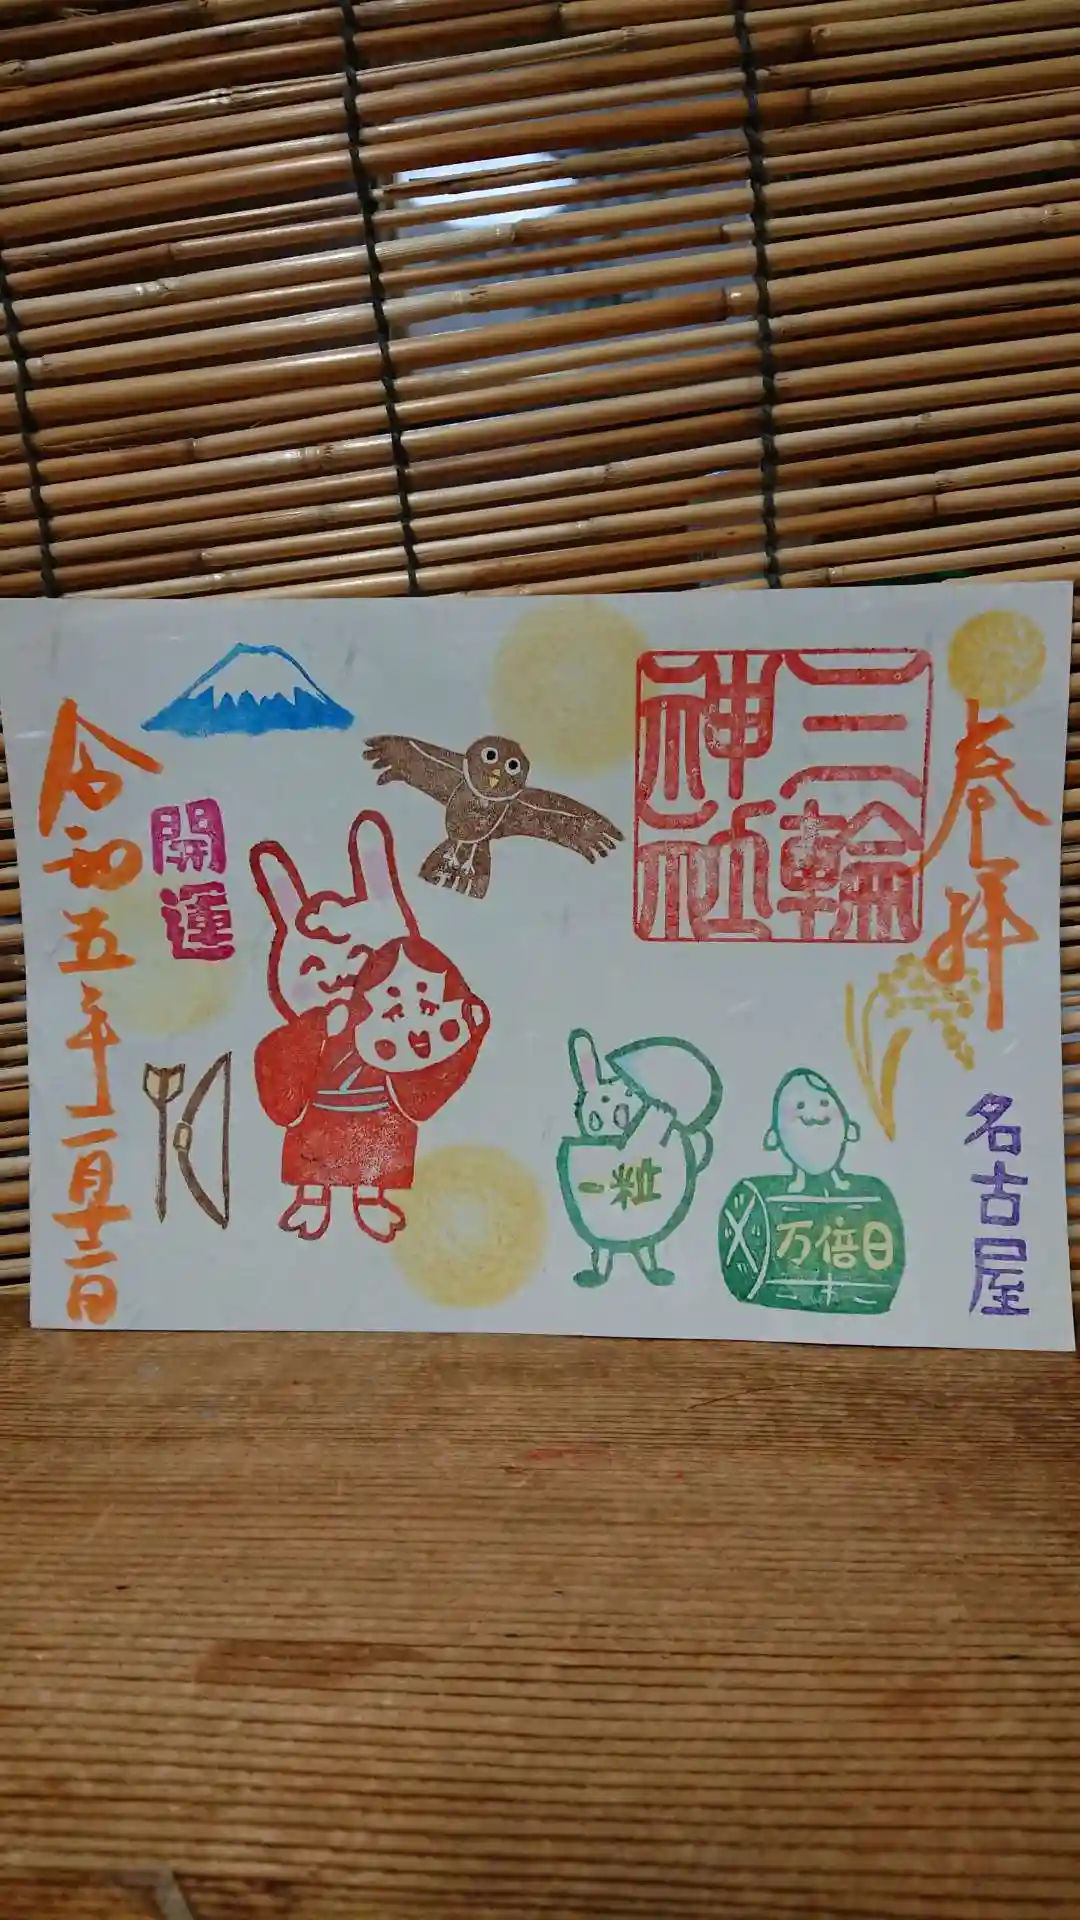 奉拝
名古屋
三輪
神社
一粒
万倍日
開運
令和五年二月十二日